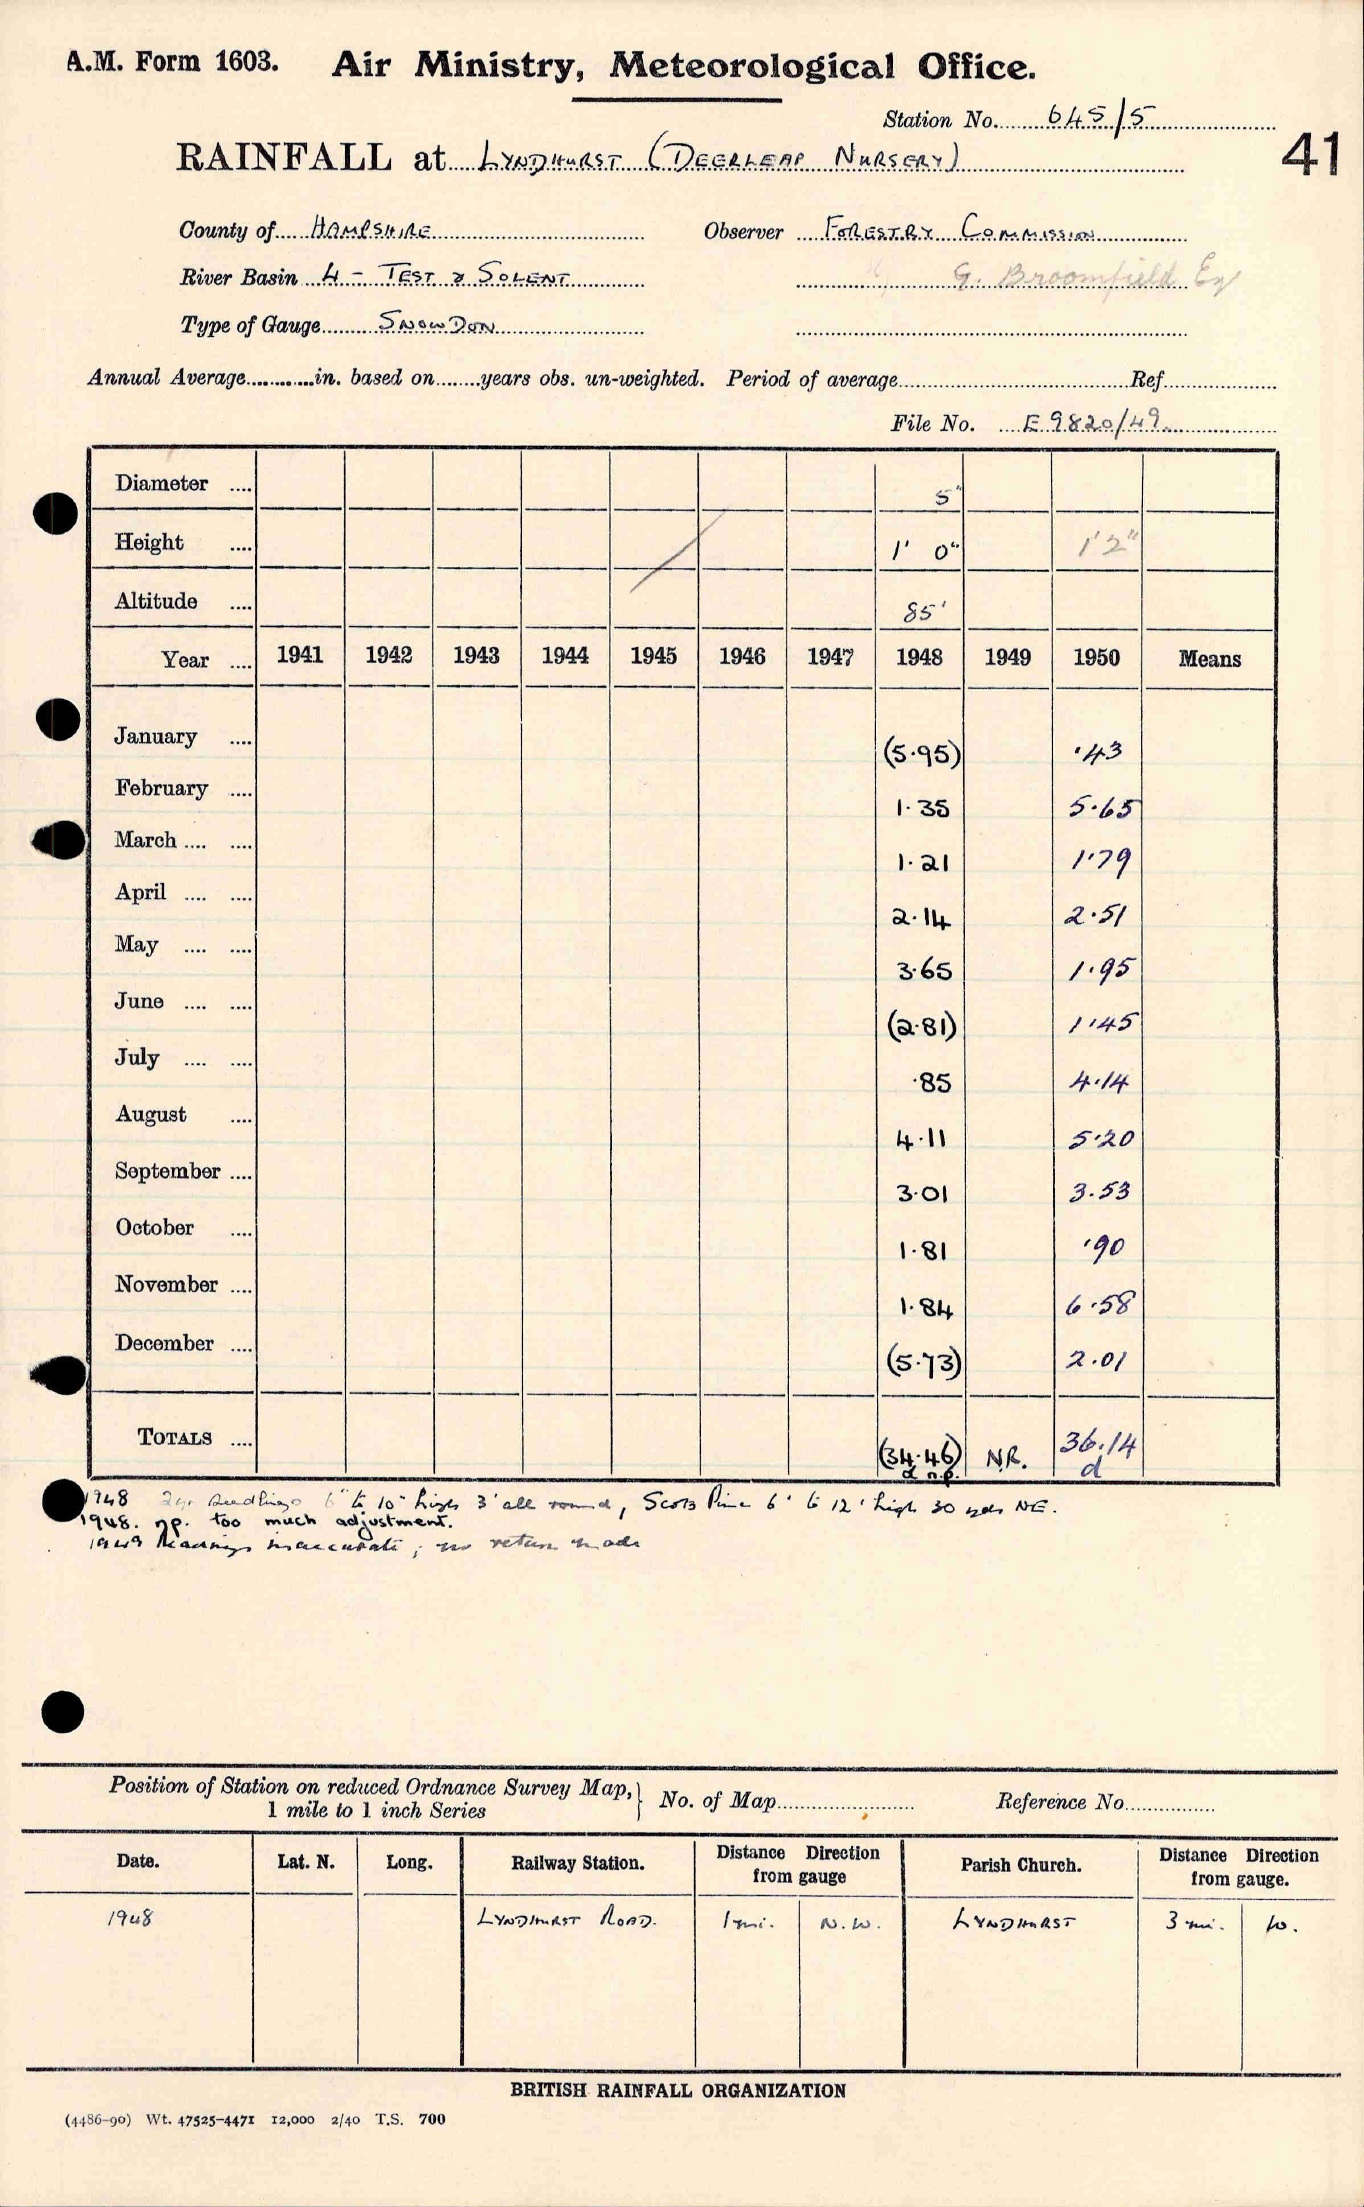 A.M. Form 1603. Air Ministry, Meteorological Office.
Station No. 645/5
41
RAINFALL at LYNDHURST (DEERLEAP NURSERY)
County of HAMPSHIRE Observer FORESTRY COMMISSION
River Basin 4 - TEST & SOLENT G. Broomfield Esq
Type of Gauge SNOWDON
Annual Average............in. based on........years obs. un-weighted. Period of average........ Ref........
File No. E 9820/49.
Diameter .... 5"
Height .... 1' 0" 1'2"
Altitude .... 85'
Year .... 1941 1942 1943 1944 1945 1946 1947 1948 1949 1950 Means
January .... (5.95) .43
February .... 1.35 5.65
March .... .... 1.21 1.79
April .... .... 2.14 2.51
May .... .... 3.65 1.95
June .... .... (2.81) 1.45
July .... .... .85 4.14
August .... 4.11 5.20
September .... 3.01 3.53
October .... 1.81 .90
November .... 1.84 6.58
December .... (5.73) 2.01
TOTALS .... (34.46) N.R. 36.14
d n.p. d
1948 2yr. seedlings 6" to 10" high 3' all round, Scots Pine 6' to 12' high 30 yds NE.
1948. n.p. too much adjustment.
1949 Readings inaccurate; no return made
Position of Station on reduced Ordnance Survey Map, } No. of Map........ Reference No........
1 mile to 1 inch Series
Date. Lat. N. Long. Railway Station. Distance Direction from gauge Parish Church. Distance Direction from gauge.
1948 LYNDHURST ROAD. 1 mi. N.W. LYNDHURST 3 mi. W.
BRITISH RAINFALL ORGANIZATION
(4486-90) Wt. 47525-4471 12,000 2/40 T.S. 700